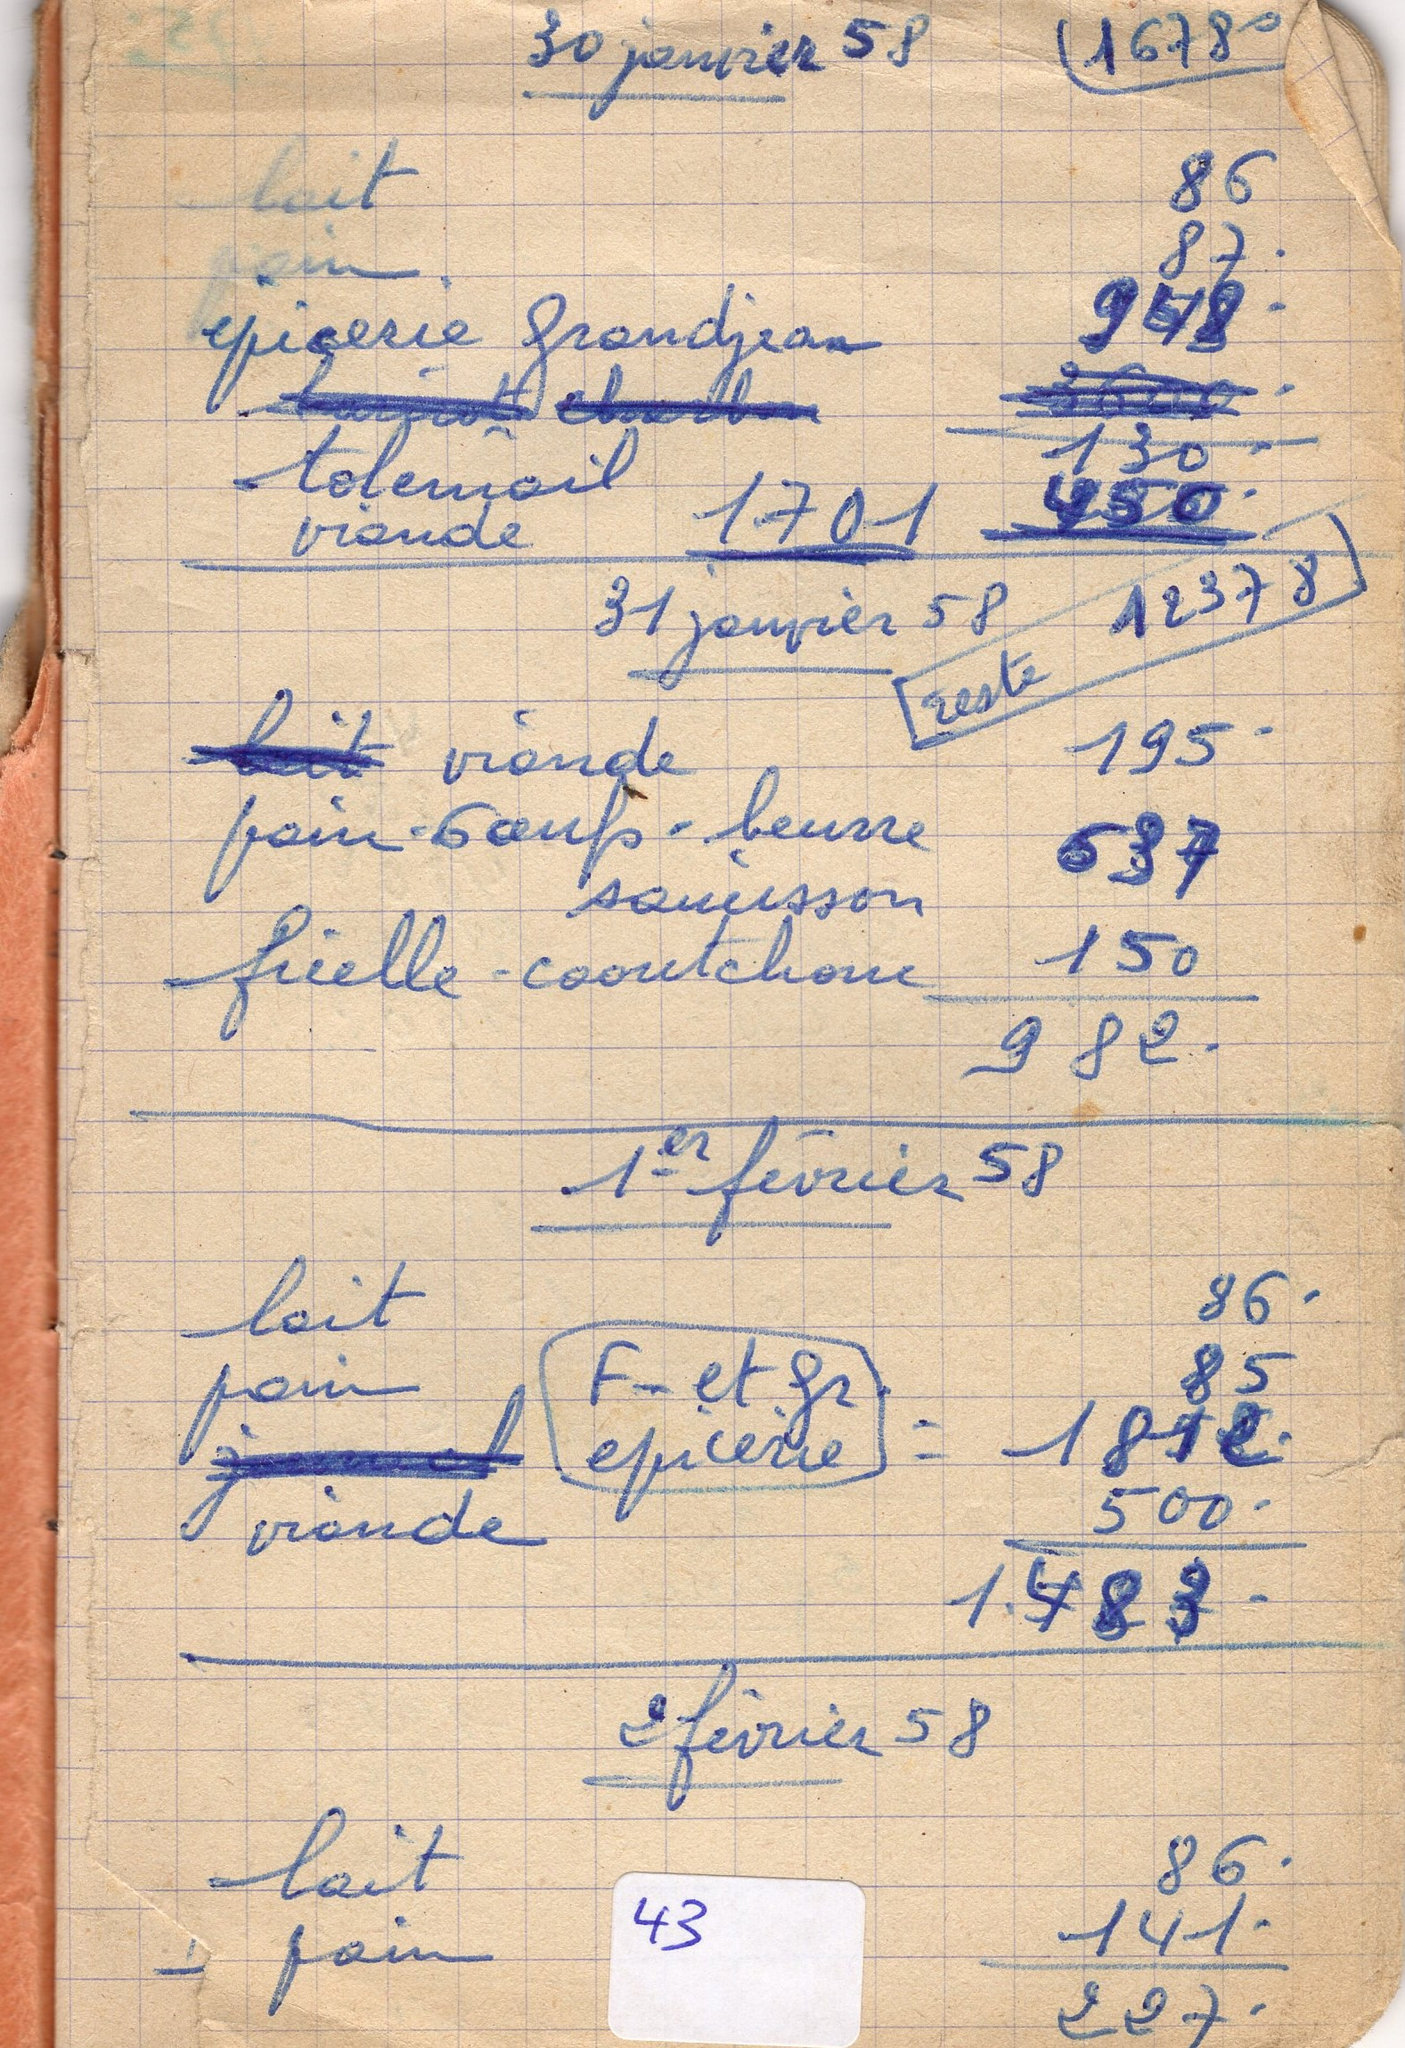 30 janvier 58 16780
lait 86
pain 87.
épicerie Grandjean 948.
130.
tolémail
viande 1701 450.
31 janvier 58 reste 12378
lait viande 195.
pain - 6 œufs - beurre 637
saucisson
ficelle - caoutchouc 150
982.
1er février 58
lait 86.
pain 85
F- et Gr.
épicerie = 1812.
journal
viande 500.
1.483.
2 février 58
lait 86.
pain 141.
227.
43